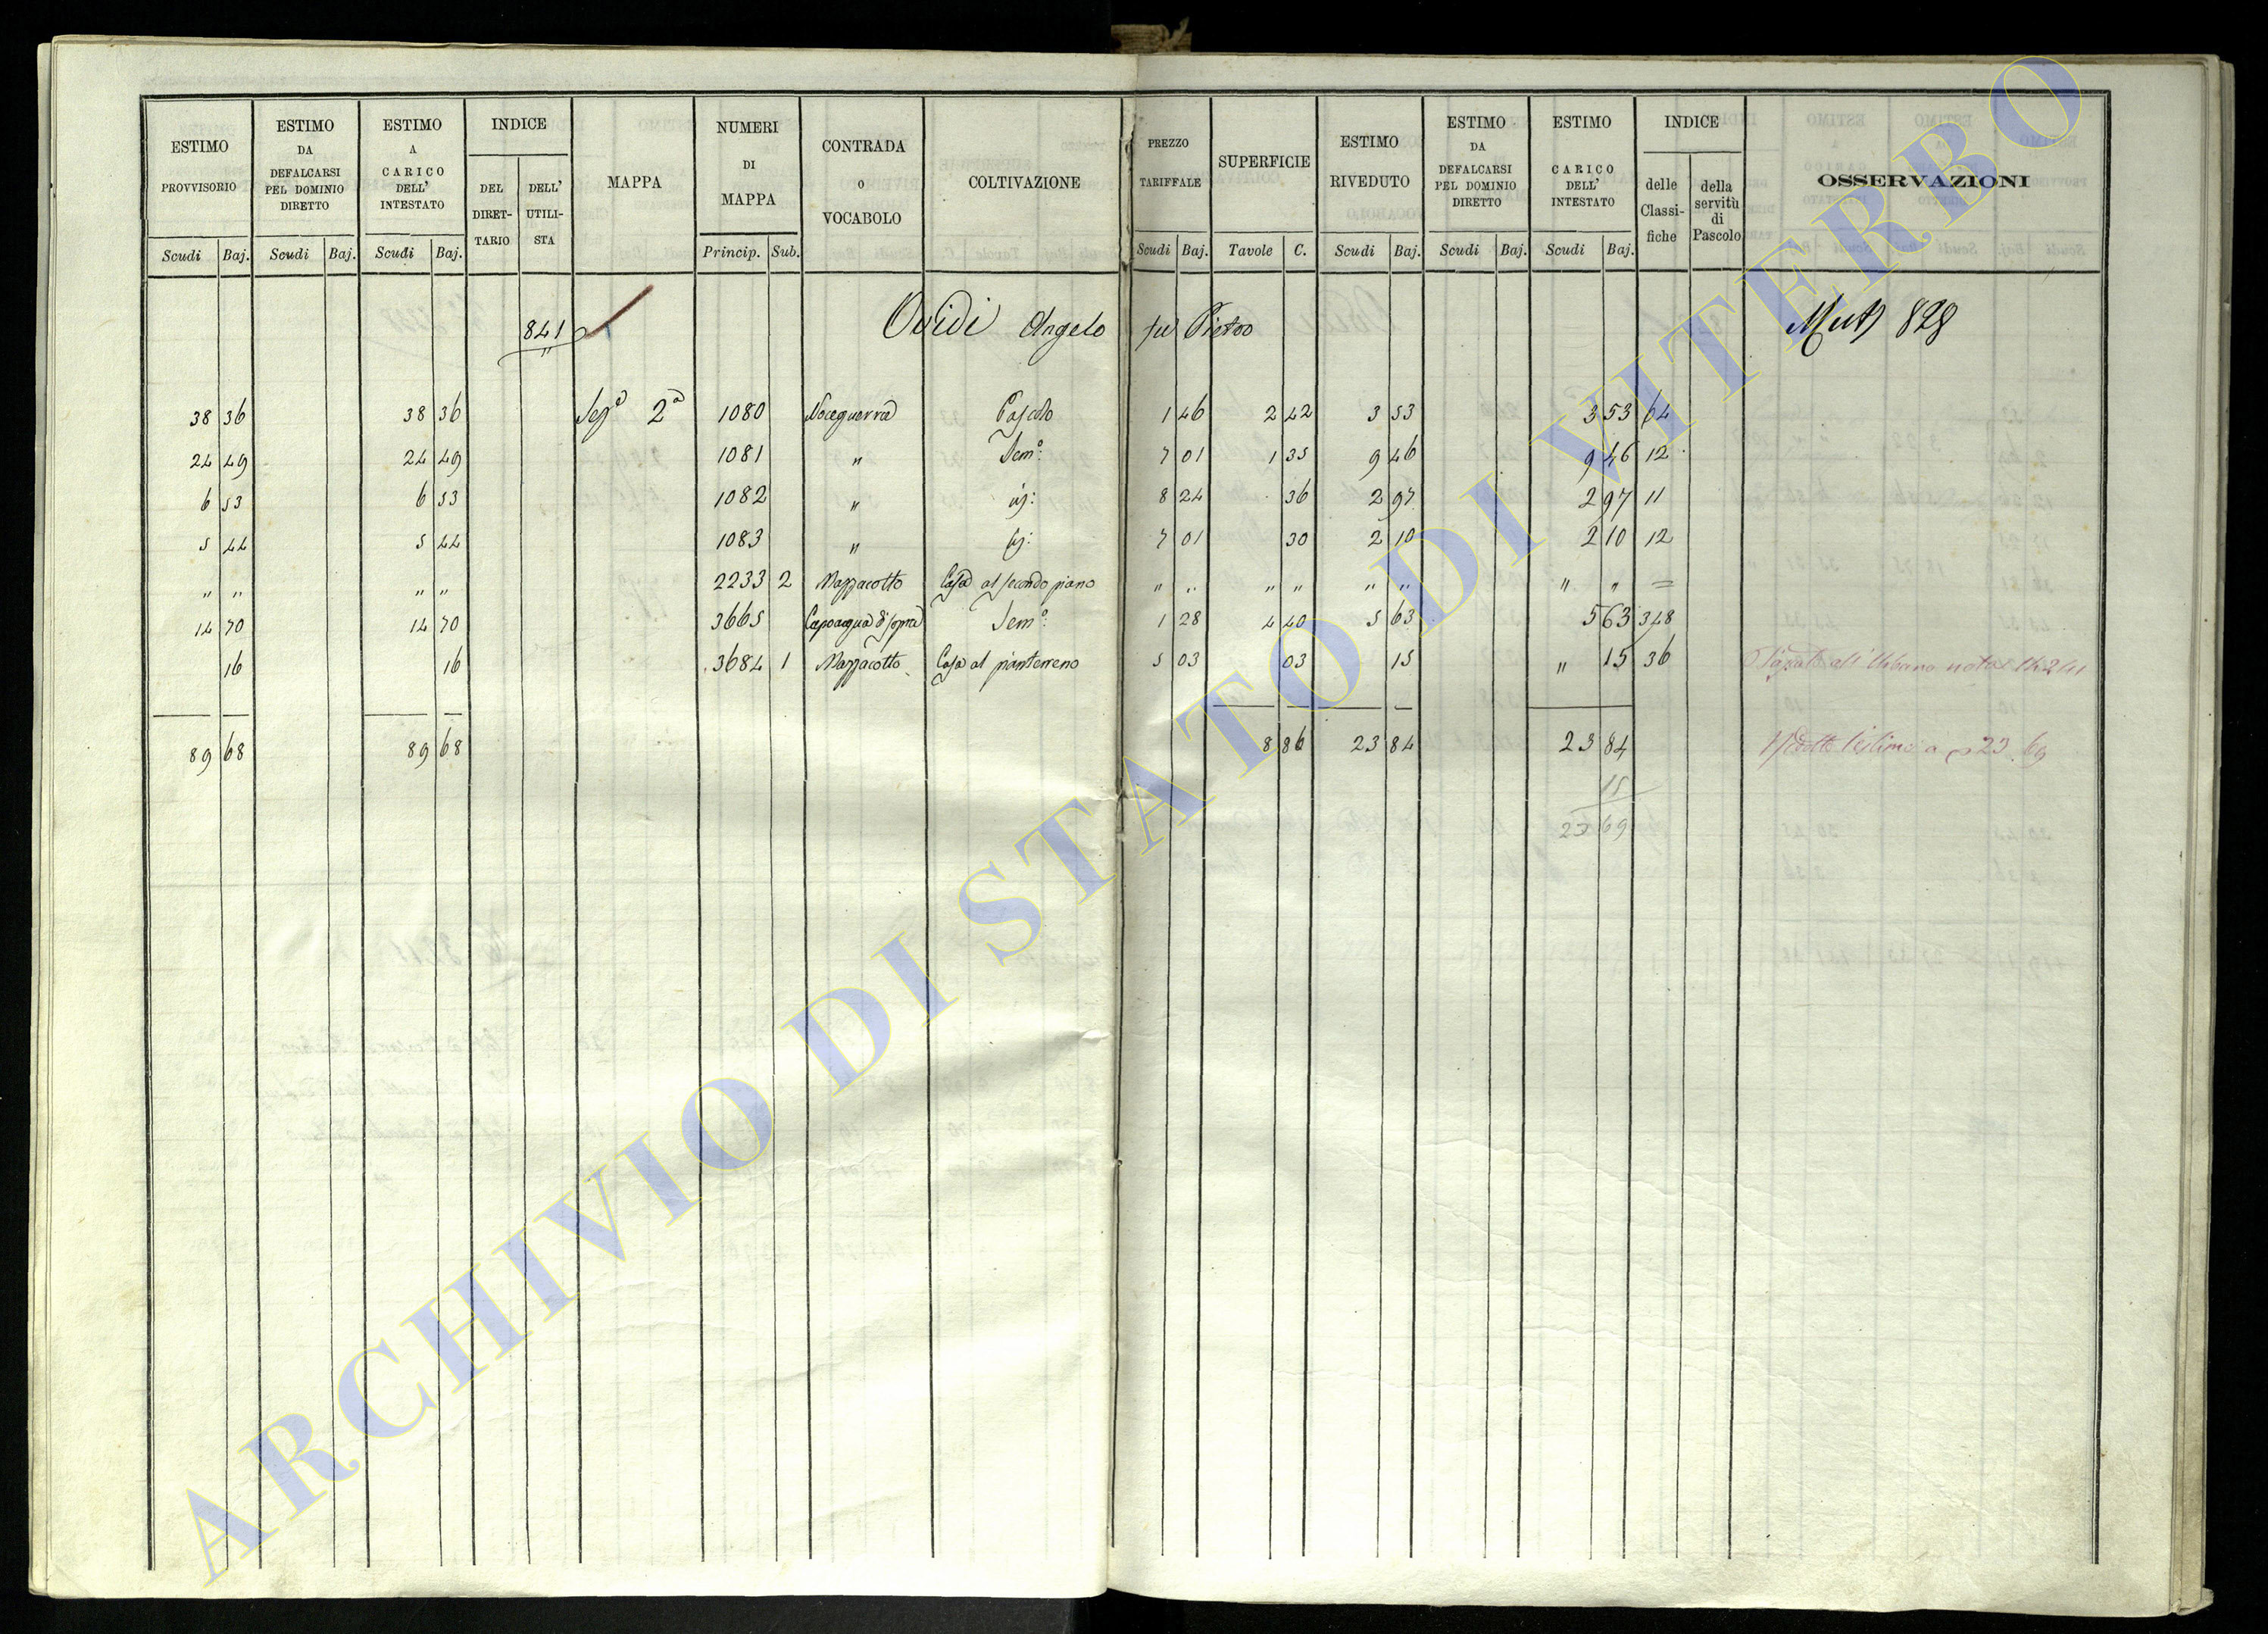 ESTIMO PROVVISORIO
ESTIMO DA DEFALCARSI PEL DOMINIO DIRETTO
ESTIMO A CARICO DELL' INTESTATO
INDICE
DEL DIRET-TARIO
DELL' UTILI-STA
MAPPA
NUMERI DI MAPPA
CONTRADA O VOCABOLO
COLTIVAZIONE
PREZZO TARIFFALE
SUPERFICIE
ESTIMO RIVEDUTO
ESTIMO DA DEFALCARSI PEL DOMINIO DIRETTO
ESTIMO CARICO DELL' INTESTATO
INDICE
delle Classi-fiche
della servitù di Pascolo
OSSERVAZIONI
Scudi Baj. Scudi Baj. Scudi Baj. Princip. Sub. Scudi Baj. Tavole C. Scudi Baj. Scudi Baj. Scudi Baj.
841 Ovidi Angelo fu Pietro 828
38 36 38 36 2a 1080 Noceguerra Pascolo 1 46 2 42 3 53 3 53 64
24 49 24 49 1081 " Sem° 7 01 1 35 9 46 9 46 12
6 53 6 53 1082 " 8 24 36 2 97 2 97 11
5 44 5 44 1083 " 7 01 30 2 10 2 10 12
" " " " 2233 2 Mazzacotto Casa al secondo piano " " " " " " " " =
14 70 14 70 3665 Capoacqua di sopra Sem° 1 28 4 40 5 63 5 63 348
16 16 3684 1 Mazzacotto Casa al pianterreno 5 03 03 15 " 15 36 all'Urbano
89 68 89 68 8 86 23 84 23 84 l'estimo a 23 69
15
23 69
ARCHIVIO DI STATO DI VITERBO